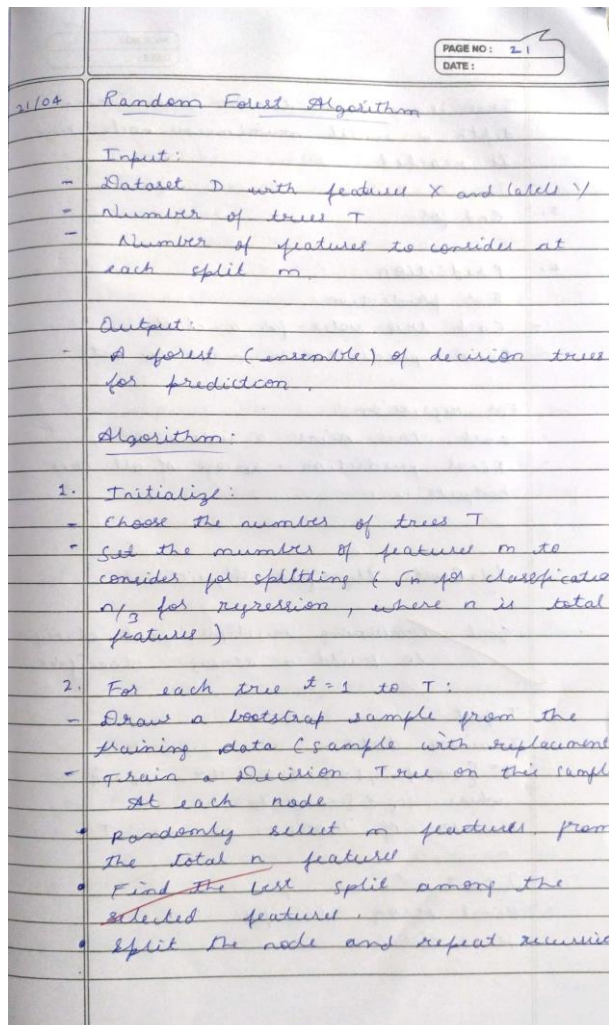 PAGE NO : 21
DATE :
21/04 Random Forest Algorithm
Input:
- Dataset D with features X and labels Y
- Number of trees T
- Number of features to consider at
each split m.
Output:
- A forest (ensemble) of decision trees
for prediction.
Algorithm:
1. Initialize:
- Choose the number of trees T
- Set the number of features m to
consider for splitting (√n for classificatio
n/3 for regression, where n is total
features)
2. For each tree t=1 to T:
- Draw a bootstrap sample from the
training data (sample with replacement
- Train a Decision Tree on this sampl
At each node
• Randomly select m features from
the total n features
• Find the best split among the
selected features.
• Split the node and repeat recursive